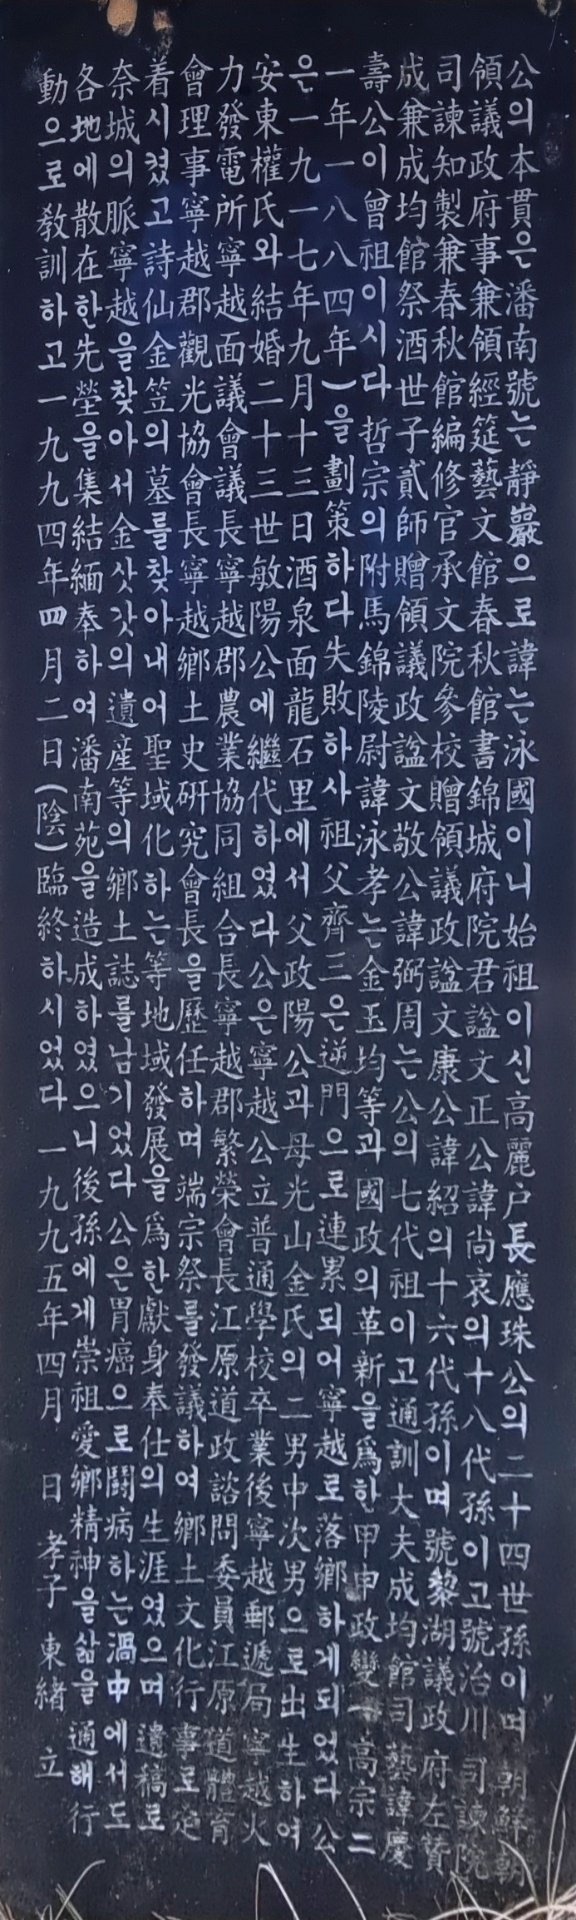 公의 本貫은 潘南號는 靜巖으로 諱는 泳國이니 始祖이신 高麗戶長應珠公의 二十四世孫이며 朝鮮朝
領議政府事兼領經筵藝文館春秋館書錦城府院君諡文正公諱尙衷의 十八代孫이고 號治川司諫院
司諫知製兼春秋館編修官承文院參校贈領議政諡文康公諱紹의 十六代孫이며 號黎湖議政府左贊
成兼成均館祭酒世子貳師贈領議政諡文敬公諱弼周는 公의 七代祖이고 通訓大夫成均館司藝諱慶
壽公이 曾祖이시다 哲宗의 附馬錦陵尉諱泳孝는 金玉均等과 國政의 革新을 爲한 甲申政變(高宗二
一年一八八四年)을 劃策하다 失敗하사 祖父齊三은 逆門으로 連累되어 寧越로 落鄕하게 되었다 公
은 一九一七年九月十三日酒泉面龍石里에서 父政陽公과 母光山金氏의 二男中次男으로 出生하여
安東權氏와 結婚二十三世敏陽公에 繼代하였다 公은 寧越公立普通學校卒業後寧越郵遞局寧越火
力發電所寧越面議會議長寧越郡農業協同組合長寧越郡繁榮會長江原道政諮問委員江原道體育
會理事寧越郡觀光協會長寧越鄕土史硏究會長을 歷任하며 端宗祭를 發議하여 鄕土文化行事로 定
着시켰고 詩仙金笠의 墓를 찾아내어 聖域化하는 等 地域發展을 爲한 獻身奉仕의 生涯였으며 遺稿로
奈城의 脈寧越을 찾아서 金삿갓의 遺産等의 鄕土誌를 남기었다 公은 胃癌으로 鬪病하는 渦中에서도
各地에 散在한 先塋을 集結緬奉하여 潘南苑을 造成하였으니 後孫에게 崇祖愛鄕精神을 삶을 通해 行
動으로 敎訓하고 一九九四年四月二日(陰)臨終하시었다 一九九五年四月 日 孝子 東緖 立